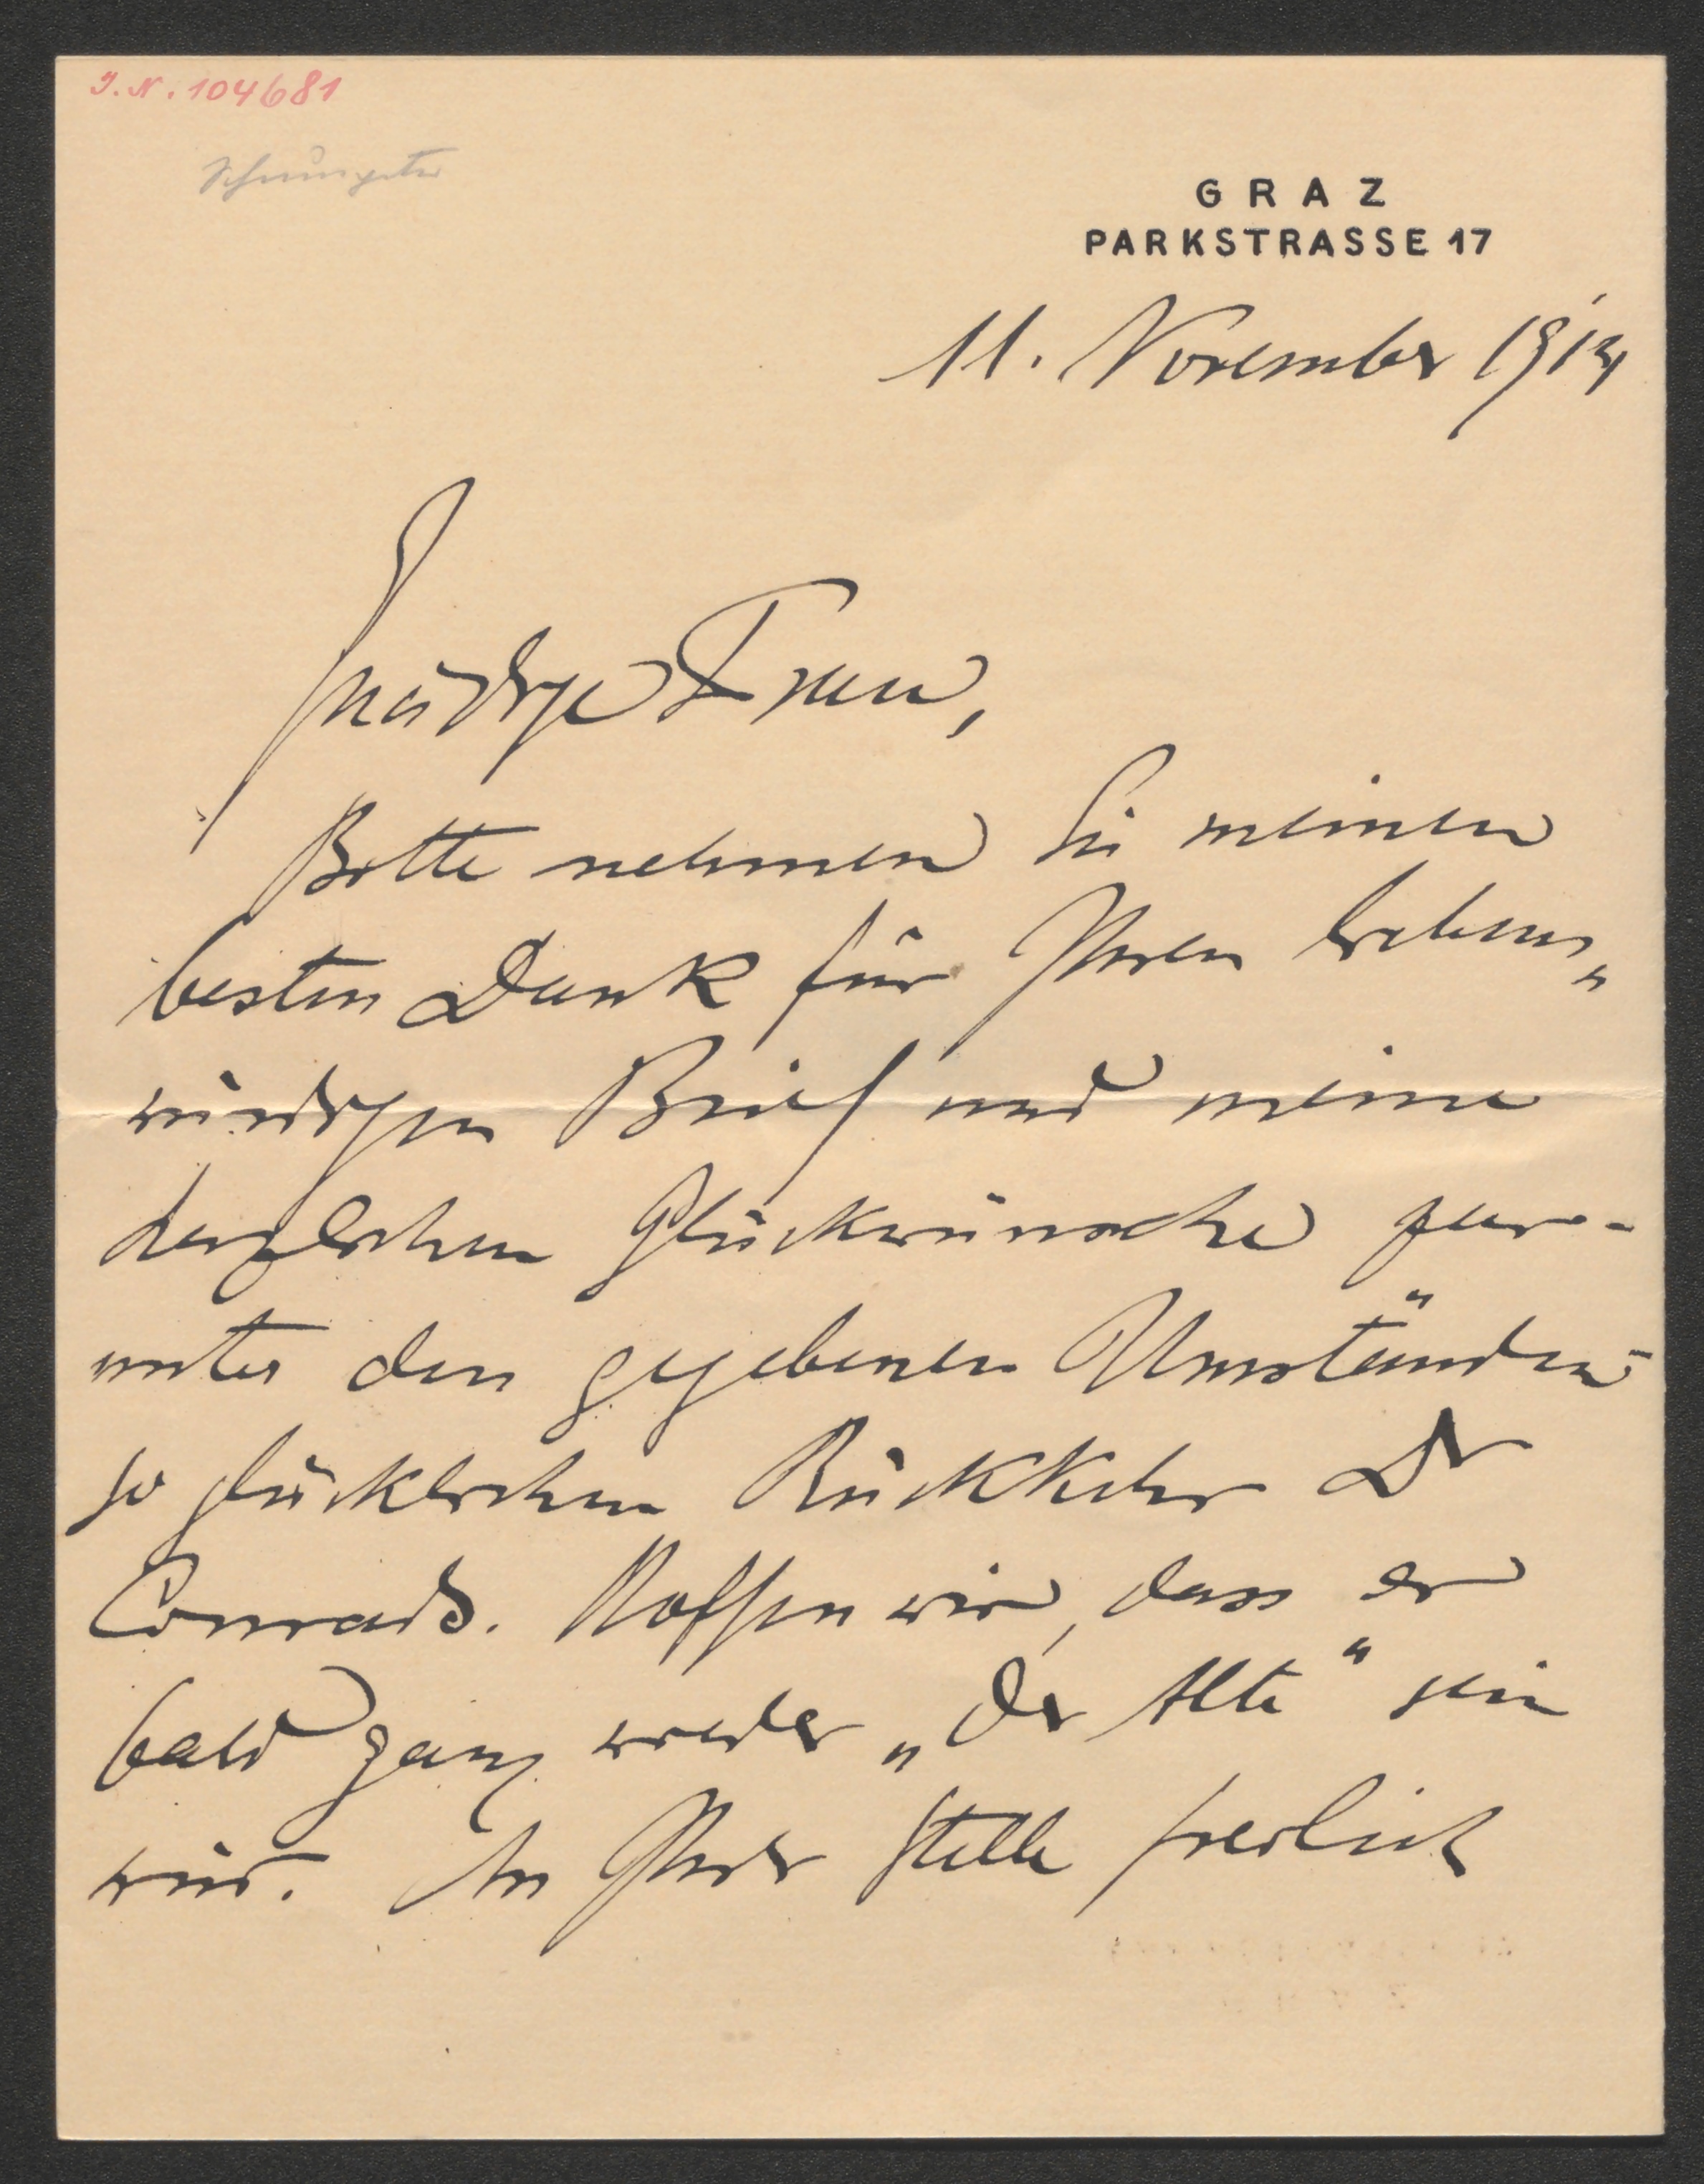 J. N. 104681
Schumpeter
GRAZ
PARKSTRASSE 17
11. November 1914
Gnädige Frau,
Bitte nehmen Sie meinen
besten Dank für Ihren liebens„
würdigen Brief und meine
herzlichen Glückwünsche zur -
unter den gegebenen Umständen -
so glücklichen Rückkehr Dr
Conrads. Hoffen wir, dass er
bald ganz wieder „der Alte“ sein
wird. An Ihrer Stelle freilich